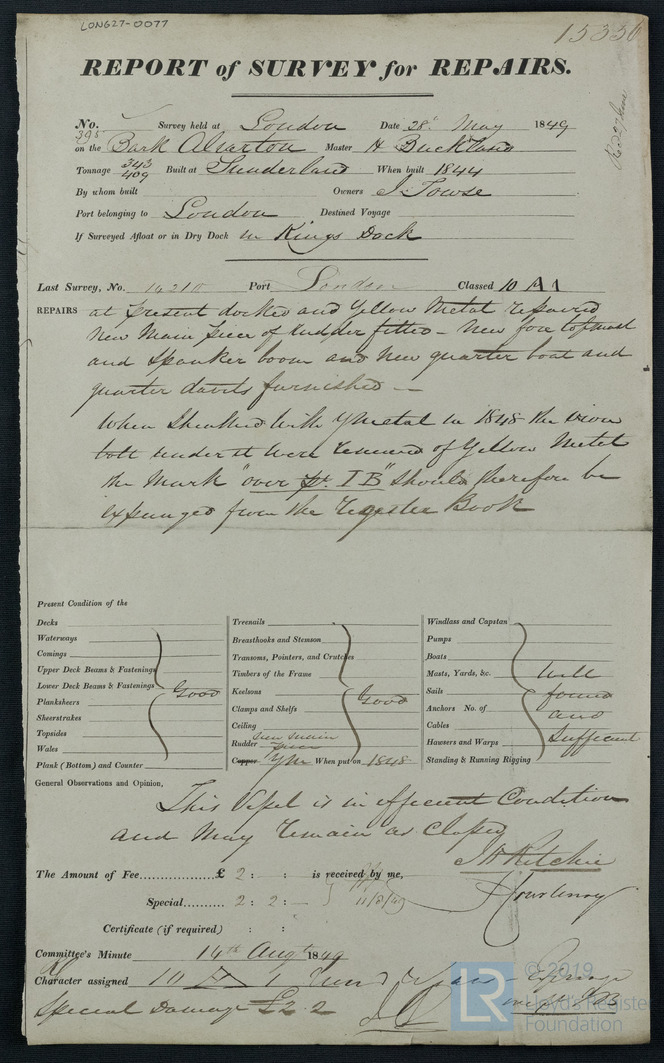 LON627-0077
15336
REPORT of SURVEY for REPAIRS.
No. 395 Survey held at London Date 28th May 1849
on the Bark Alverton Master H Buckland
Tonnage 343 409 Built at Sunderland When built 1844
By whom built Owners J. Towse
Port belonging to London Destined Voyage
If Surveyed Afloat or in Dry Dock in Kings Dock
Last Survey, No. 14210 Port London Classed 10 A1
REPAIRS at present docked and Yellow Metal repaired
New Main piece of Rudder fitted - New fore topmast
and Spanker boom and new quarter boat and
quarter davits furnished —
When Sheathed with YMetal in 1848 the iron
bolts under it were removed of Yellow Metal
the Mark "over pt. I B" should therefore be
expunged from the Register Book
Present Condition of the
Decks
Waterways
Comings
Upper Deck Beams & Fastenings
Lower Deck Beams & Fastenings
Planksheers
Sheerstrakes
Topsides
Wales
Plank (Bottom) and Counter
Good
Treenails
Breasthooks and Stemson
Transoms, Pointers, and Crutches
Timbers of the Frame
Keelsons
Clamps and Shelfs
Ceiling
Rudder new main piece
Copper YM When put on 1848
Good
Windlass and Capstan
Pumps
Boats
Masts, Yards, &c.
Sails
Anchors No. of
Cables
Hawsers and Warps
Standing & Running Rigging
Well
found
and
Sufficient
General Observations and Opinion,
This Vessel is in efficient Condition
and May remain as Classed
J. H. Ritchie
J Courtenay
The Amount of Fee............... £ 2 : : is received by me,
Special......... 2 : 2 : — 11/8/49
Certificate (if required) : :
Committee's Minute 14th Augt 1849
Character assigned 10 A 1
Special Damage £2 2
© 2019
LR
Lloyd's Register
Foundation